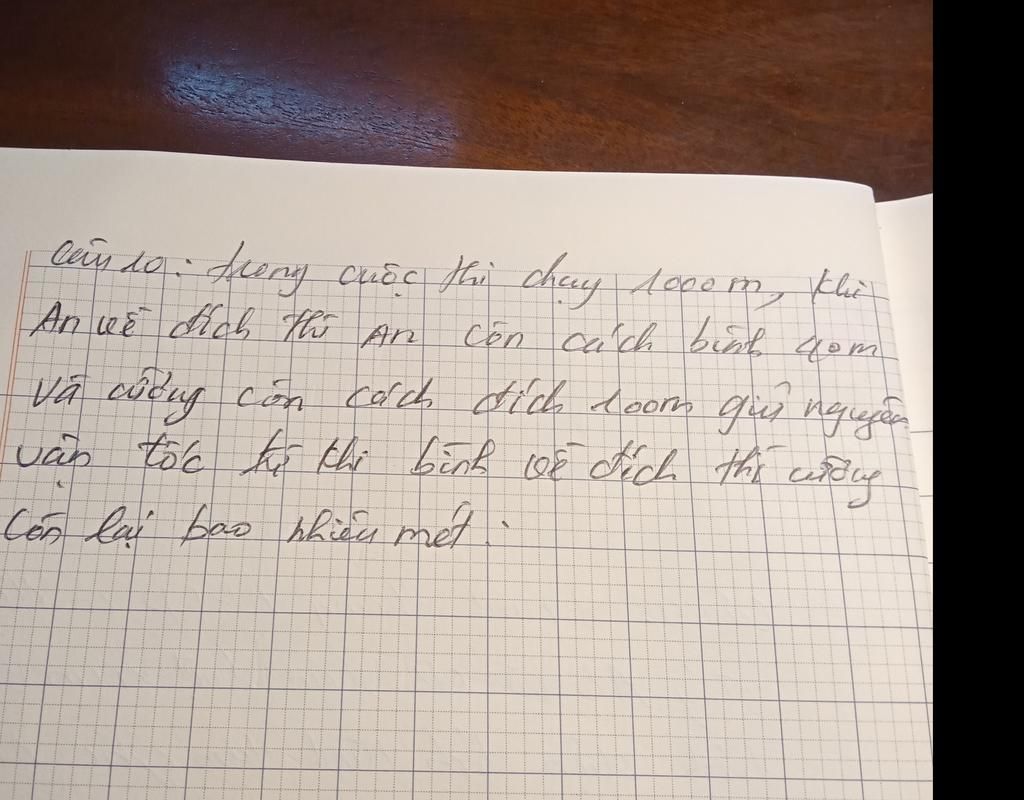 Câu 10: trong cuộc thi chạy 1000m, khi
An về đích thì An còn cách bình 40m
Và cường còn cách đích 100m giữ nguyên
vận tốc thì khi bình về đích thì cường
Còn lại bao nhiêu mét: